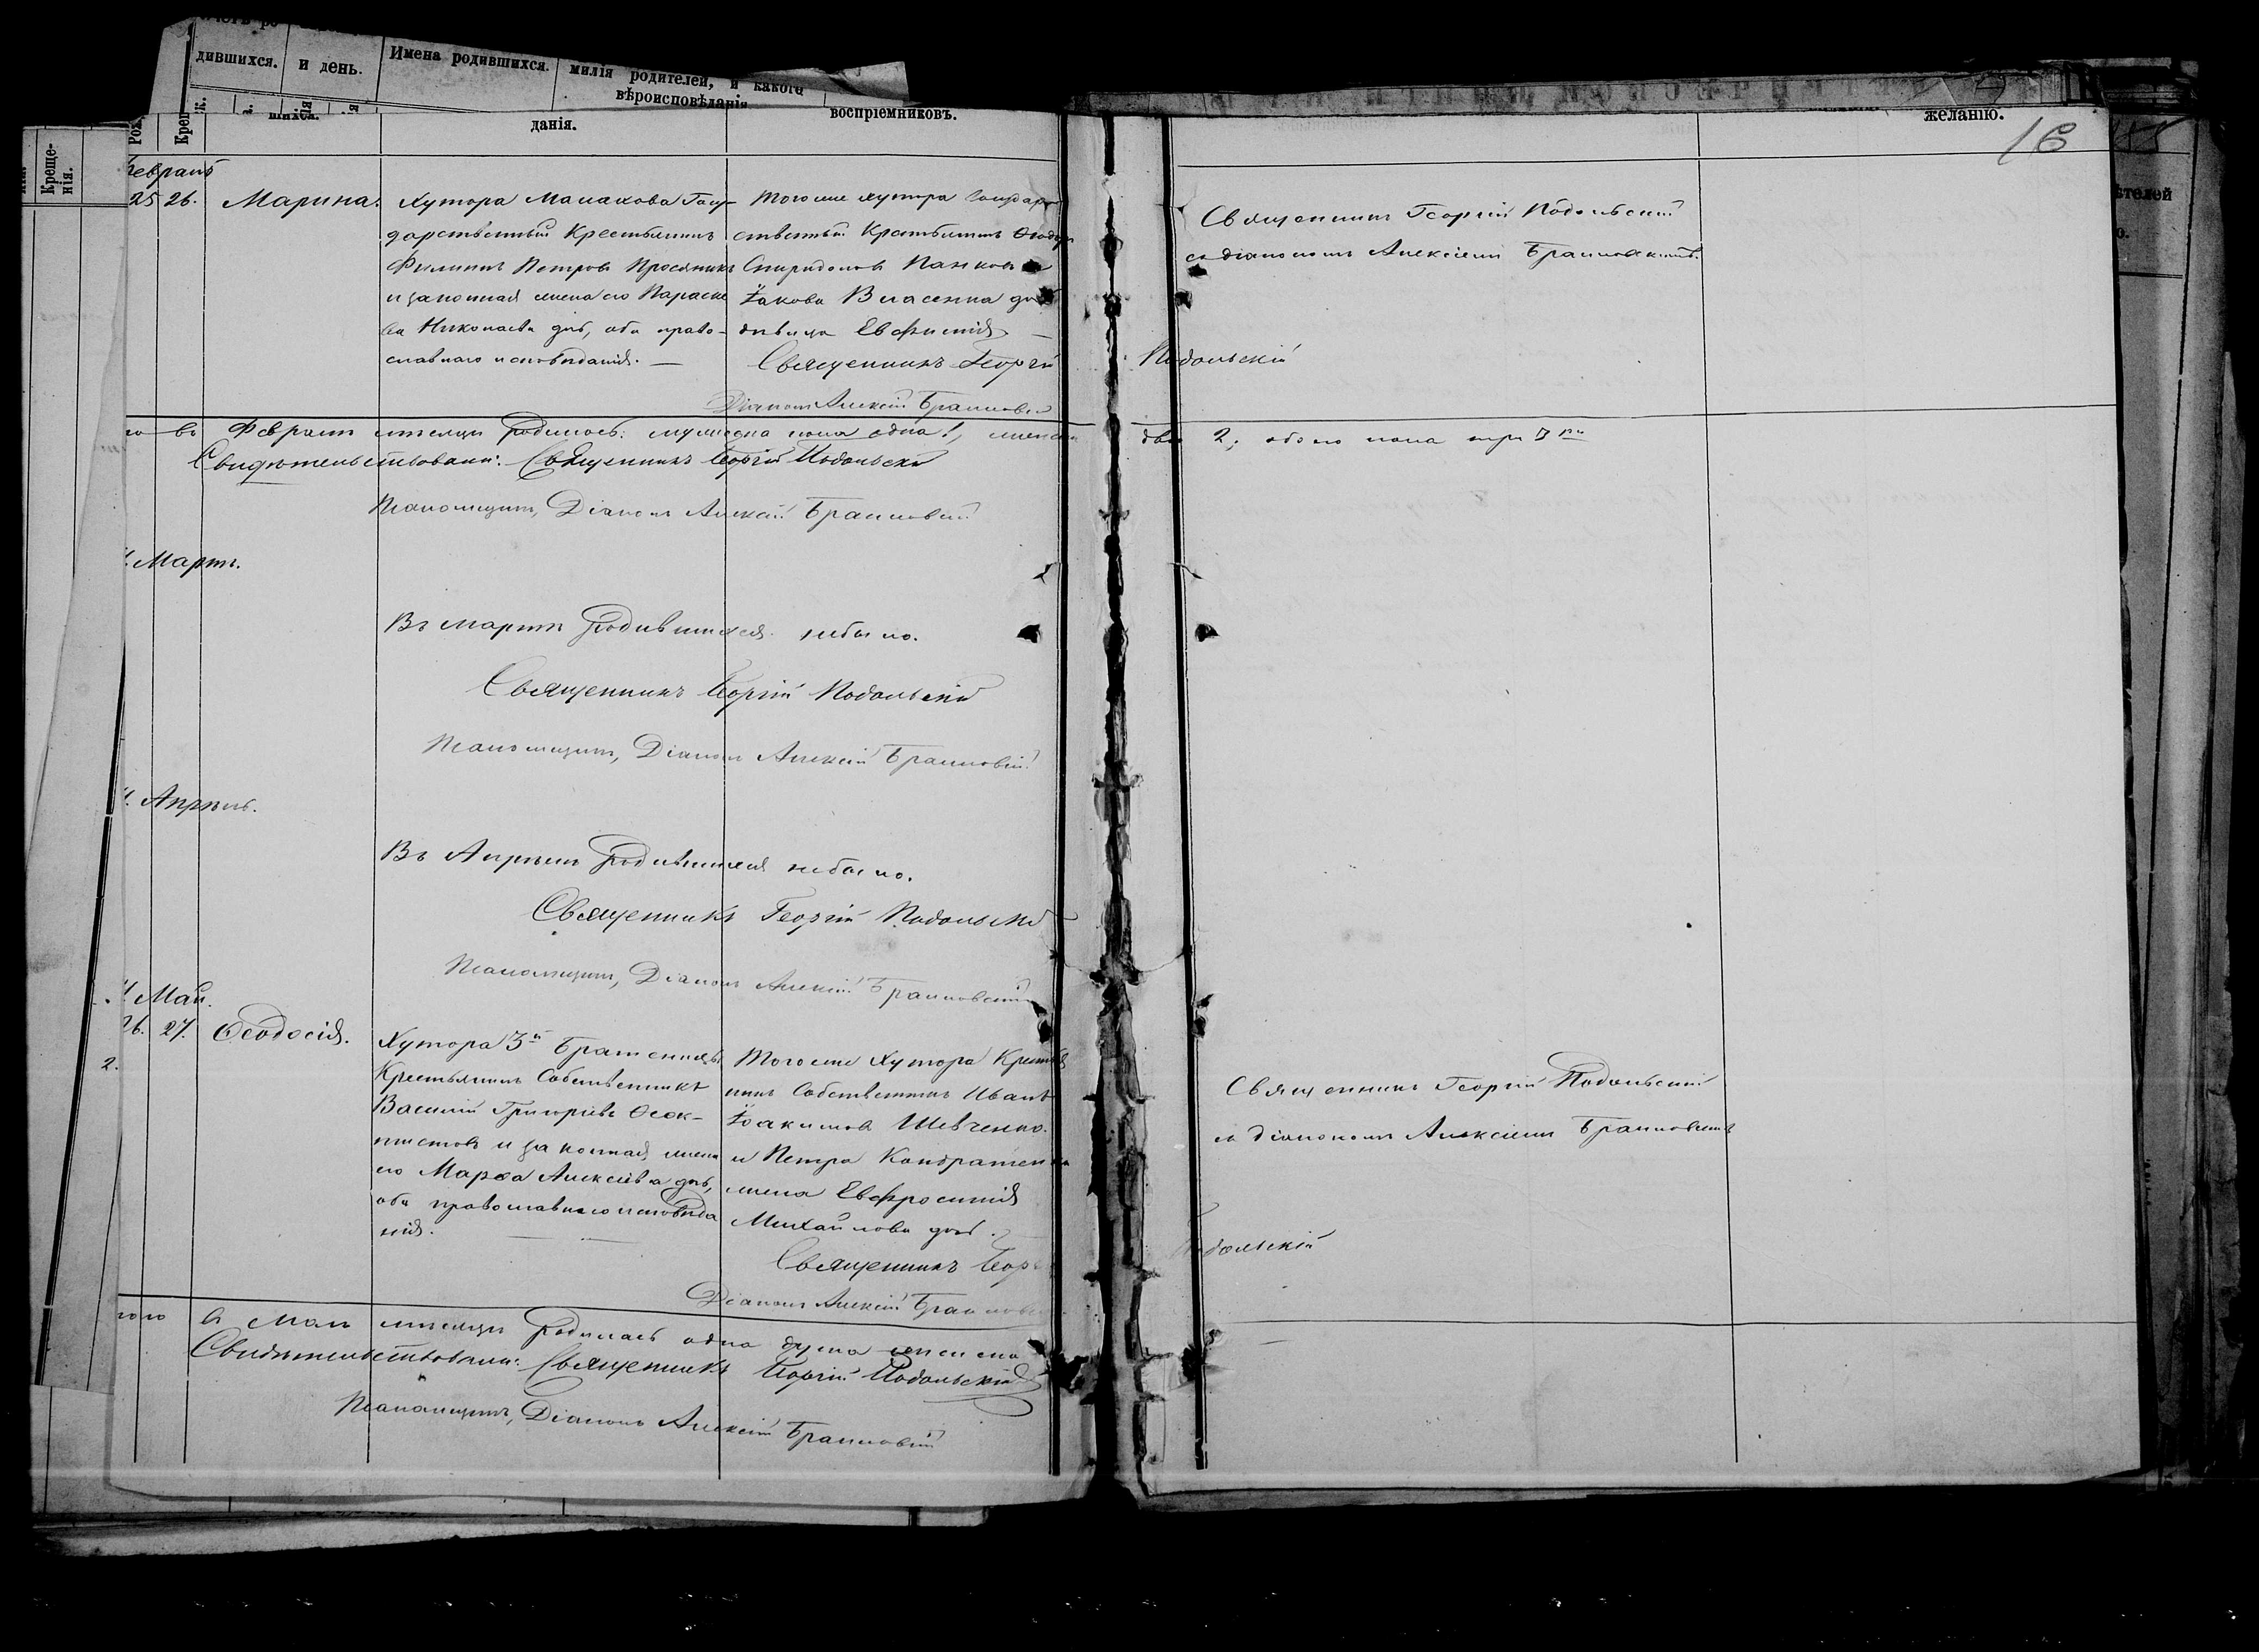 дившихся.
и день.
Имена родившихся.
милія родителей, и какого
вѣроисповѣданія
Креще-
нія.
данія.
воспріемниковъ.
желанію.
16
25 26. Марина.
Хутора Манакова Госу-
дарственный Крестьянинъ
Филиппъ Петровъ Просяникъ
и законная жена его Параске
ва Николаева дчь, оба право-
славнаго исповѣданія. —
Тогоже хутора Государ
ственный Крестьянинъ Ѳеодоръ
Спиридоновъ Панковъ
Іакова Власенка дчь
дѣвица Евфимія —
Священникъ Георгій
Подольскій
Діаконъ Алексій
Священникъ Георгій Подольскій
съ діакономъ Алексіемъ
въ Февралѣ мѣсяцѣ родилось: мужеска пола одна 1, женска
два 2; обоего пола три 3
Свидѣтельствовали: Священникъ Георгій Подольскій
Псаломщикъ, Діаконъ Алексій
Мартъ.
Въ мартѣ родившихся небыло.
Священникъ Георгій Подольскій
Псаломщикъ, Діаконъ Алексій
Апрѣль.
Въ Апрѣлѣ родившихся небыло.
Священникъ Георгій Подольскій
Псаломщикъ, Діаконъ Алексій
Май.
26. 27. Ѳеодосія.
2.
Хутора 3й Братеницы
Крестьянинъ Собственникъ
Василій Григорьевъ Ѳеок-
тистовъ и законная жена
его Марѳа Алексіева дчь,
оба православнаго исповѣда
нія.
Тогоже Хутора Крестья
нинъ Собственникъ Иванъ
Іоакимовъ Шевченко.
и Петра Кондратенка
жена Евфросинія
Михайлова дчь.
Священникъ Георг
одольскій
Діаконъ Алексій
Священникъ Георгій Подольскій
съ діакономъ Алексіемъ
въ Маѣ мѣсяцѣ родилась одна душа женска
Свидѣтельствовали: Священникъ Георгій Подольскій
Псаломщикъ, Діаконъ Алексій